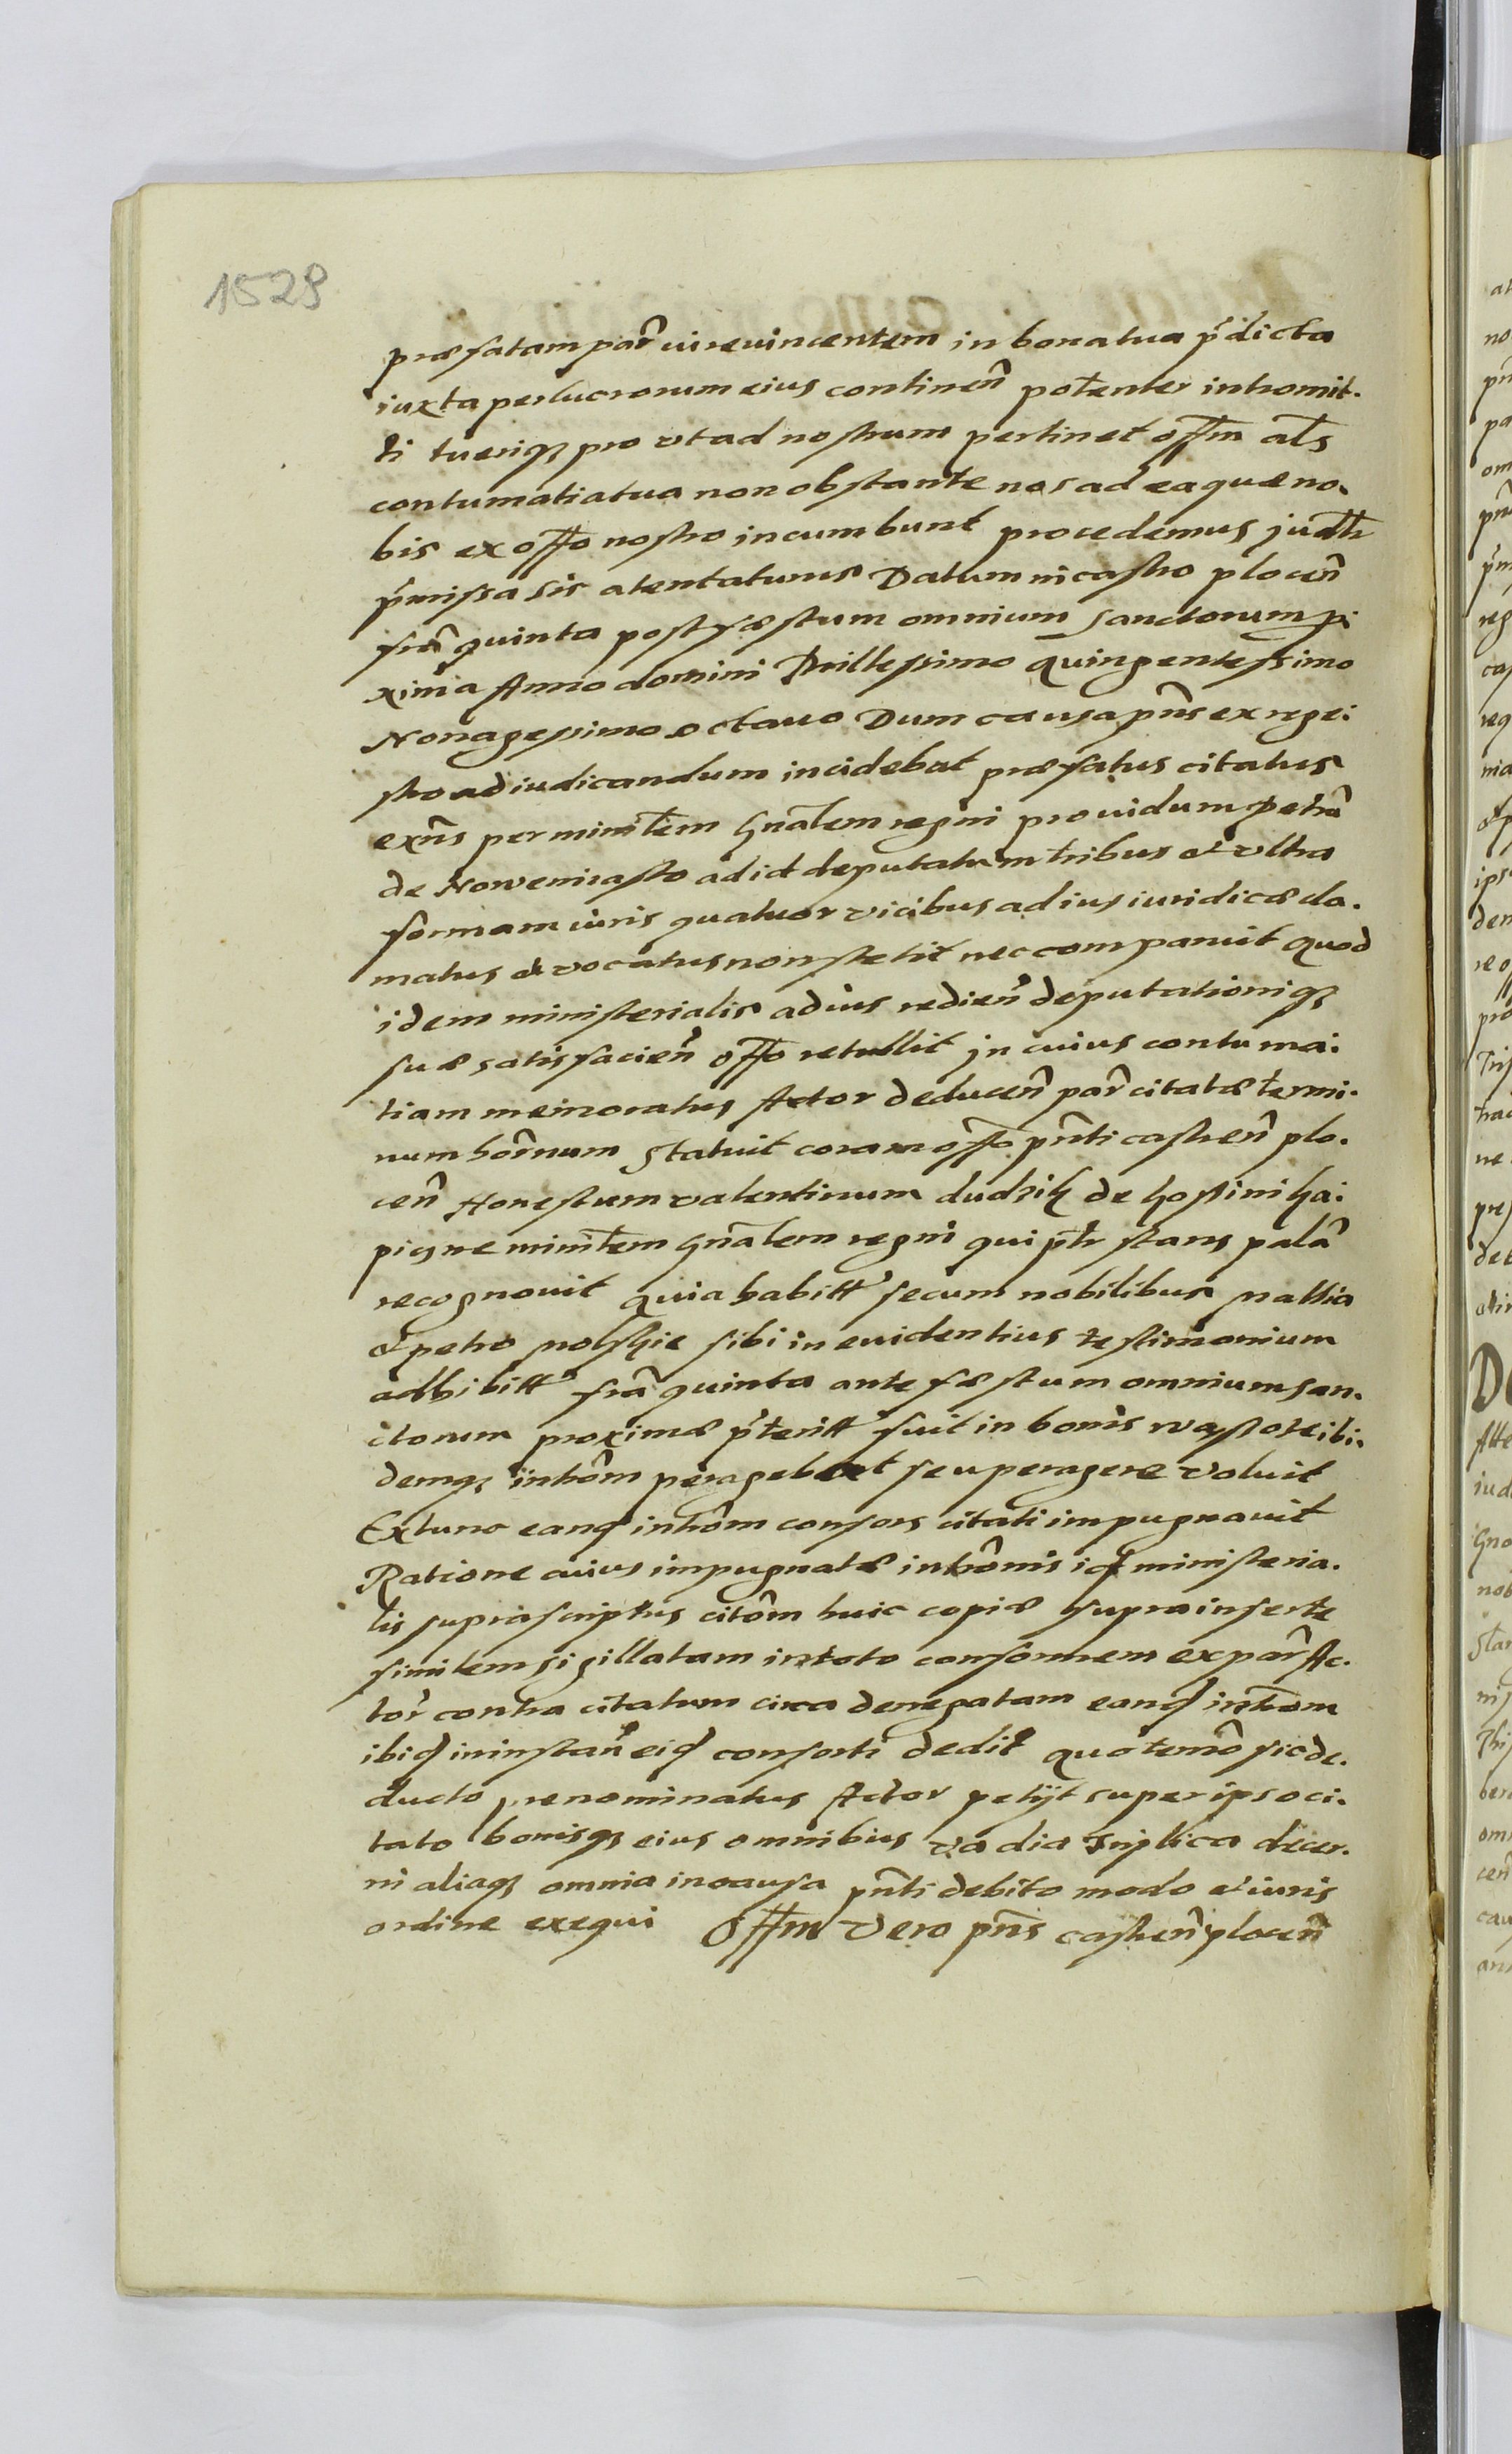 1529
præfatam par̃ vi revincentem in bona tua p̃dicta
iuxta perlucrorum eius continen̄ potenter intromit.
ti tueriq; pro vt ad nostrum pertinet off̃m al̃s
contumatia tua non obstante nos ad ea quæ no.
bis ex off̃o nostro incumbunt procedemus jud̃tr
p̃missa sis atentaturus Datum in castro plocen̄
fr̃a quinta post fæstum omnium Sanctorum p̱
xima Anno domini Millessimo quingentessimo
Nonagessimo octauo Dum causa pñs ex regi:
stro ad iudicandum incidebat præfatus citatus
exñs per minis̃tlem gñalem regni providum petrũ
de Nowemiasto ad id deputatum tribus et vltra
formam iuris quatuor vicibus ad ius iuridicæ cla.
matus et vocatus non stetit nec comparuit quod
idem ministerialis ad ius redien̄ deputationiq;
suæ satisfacien̄ off̃o retullit jn cuius contuma:
tiam memoratus Actor deducen̄ par̃ citatæ termi.
num hor̃num Statuit coram off̃o pñti castren̄ plo.
cen̄ Honestum valentinum dudzik de gostini ka:
piczne minis̃tlem gñalem regni qui p̃tr stans palã
recognovit quia habitt' secum nobilibus mathia
et petro molskie sibi in euidentius testimonium
adhibitt' fr̃a quinta ante fæstum omnium San.
ctorum proximæ p̃teritt' fuit in bonis wasoze ibi.
demq; introm̃ peragebat seu peragere voluit
Extunc eand introm̃ consors citati impugnauit
Ratione cuius impugnatæ introm̃is id ministeria.
lis suprascriptus citõm huic copiæ supra inserte
similem sigillatam in toto consonnem ex par̃ Ac.
tor̃ contra citatum circa denegatam eand introm̃
ibid in instan̄ eid consorti dedit quo ter̃mo sic de.
ducto prenominatus Actor petijt super ipso ci.
tato bonisq; eius omnibus vadia triplica decer.
ni aliaq; omnia in causa pñti debito modo et iuris
ordine exequi Off̃m vero pñs castren̄ plocen̄